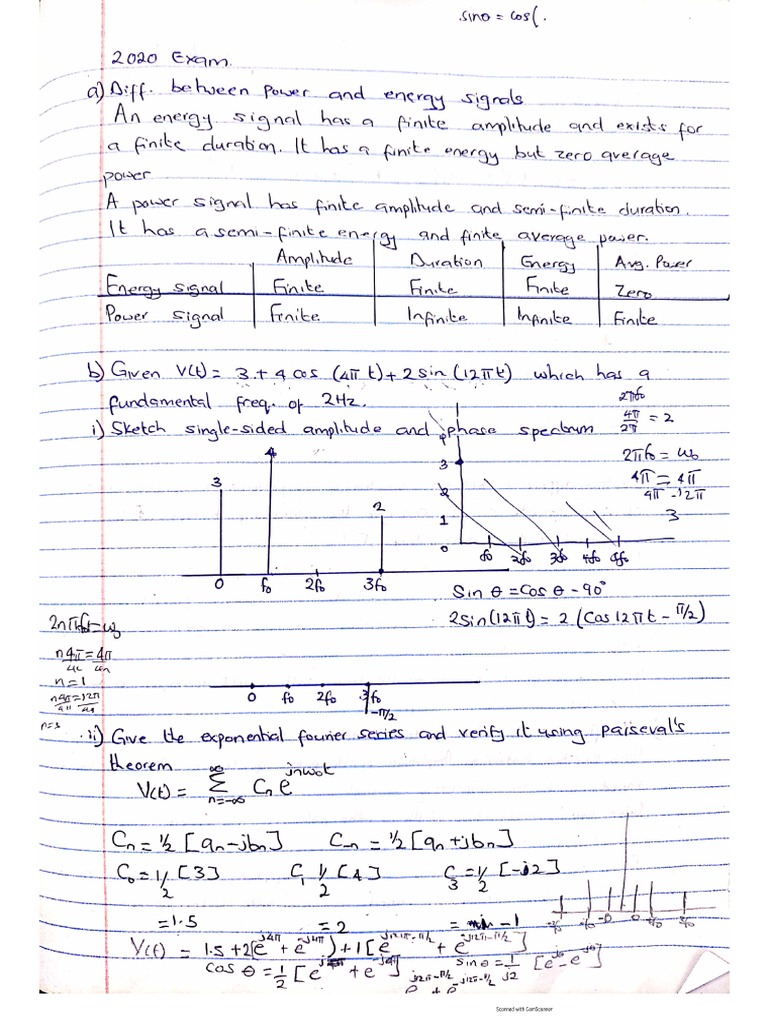 sinθ = cos(.
2020 Exam.
a) Diff. between power and energy signals
An energy signal has a finite amplitude and exists for
a finite duration. It has a finite energy but zero average
power
A power signal has finite amplitude and semi-finite duration.
It has a semi-finite energy and finite average power.
Amplitude Duration Energy Avg. Power
Energy signal Finite Finite Finite Zero
Power signal Finite Infinite Infinite Finite
b) Given V(t) = 3 + 4 cos (4π t) + 2 sin (12π t) which has a
fundamental freq. of 2Hz.
i) Sketch single-sided amplitude and phase spectrum
2πf₀
4π/2π = 2
2πf₀ = ω₀
4π = 4π
4π - 12π
3
3 4 2
0 f₀ 2f₀ 3f₀
3
2
1
0 f₀ 2f₀ 3f₀ 4f₀
Sin θ = Cos θ - 90°
2Sin(12πt) = 2 (Cos12πt - π/2)
2nπf₀ = ω₀
n4π = 4π
n = 1
n4π = 12π
n=3
0 f₀ 2f₀ 3f₀
-π/2
ii) Give the exponential fourier series and verify it using paiseval's
theorem
V(t) = ∞Σn=-∞ Cn e^jnω₀t
Cn = ½ [an - jbn] C-n = ½ [an + jbn]
C₀ = 1/2 [3] C₁ 1/2 [4] C₃ = 1/2 [-j2]
= 1.5 = 2 = -1
V(t) = 1.5 + 2[e^j4π + e^-j4π] + 1[e^j12π-π/2 + e^-j12π-π/2]
cos θ = 1/2 [e^j + e^-jθ] sin θ = 1/j2 [e^jθ - e^-jθ]
Scanned with CamScanner